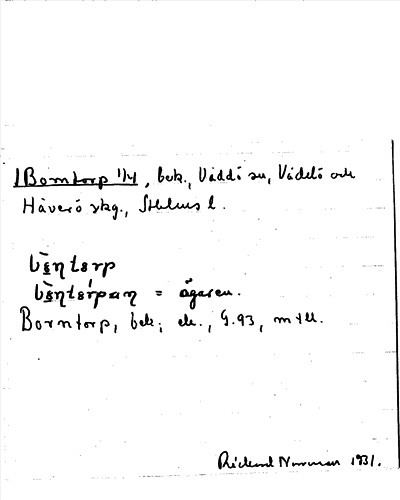 Borntorp 1/4, bek., Väddö sn, Väddö och
Häverö skg., Sthlms l.
bèntɛrp
bèntɛrpan = ägaren.
Borntorp, bek; ek., G.93, mtll.
Rickard Norrman 1931.